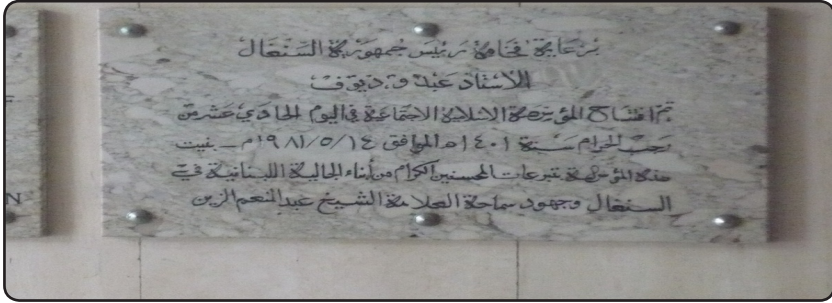 برعاية فخامة رئيس جمهورية السنغال
الأستاذ عبد و ديوف
تم افتتاح المؤسسة الاسلامية الاجتماعية في اليوم الحادي عشر من
رجب الحرام سنة ١٤٠١ ه الموافق ١٤/٥/١٩٨١م ـ بنيت
هذه المؤسسة بتبرعات المحسنين الكرام من أبناء الجالية اللبنانية في
السنغال وجهود سماحة العلامة الشيخ عبد المنعم الزين
N